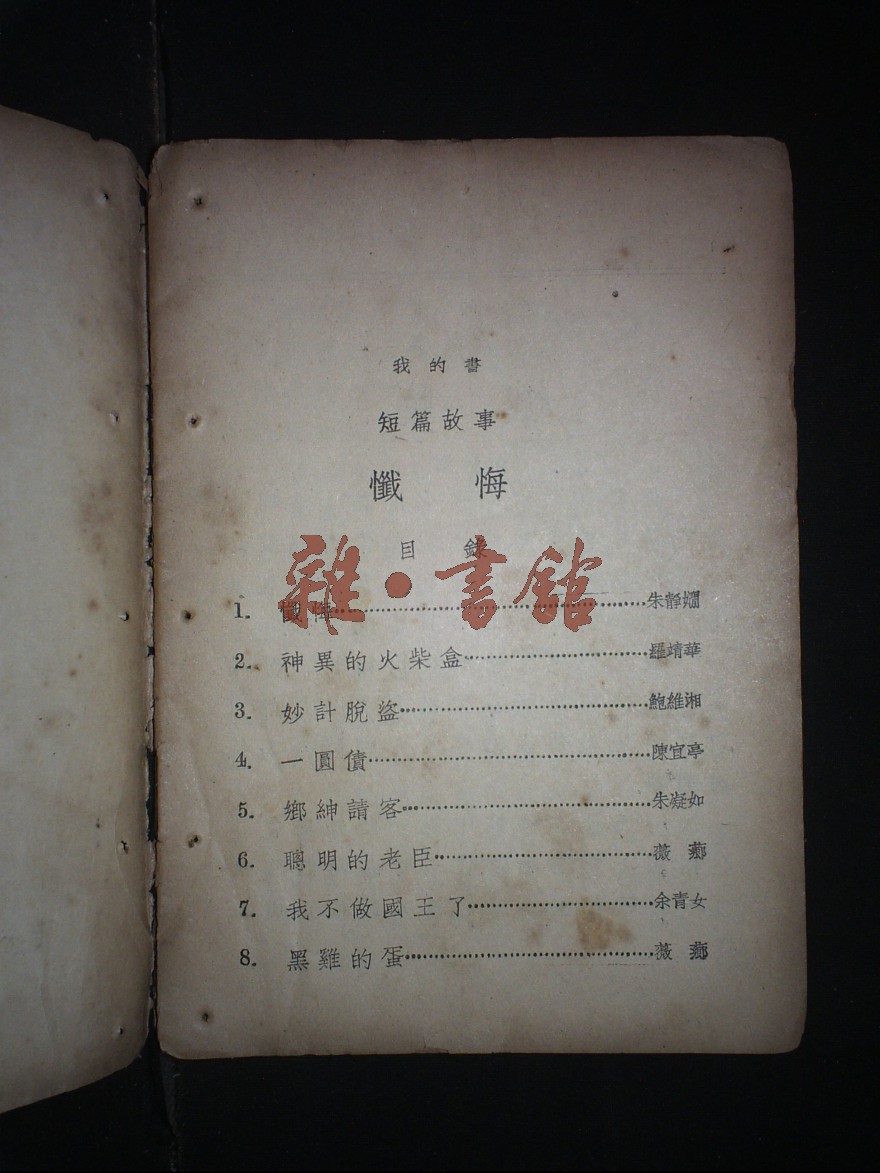 我的書
短篇故事
懺悔
目錄
雜·書館
1. 懺悔……朱靜嫺
2. 神異的火柴盒……羅靖華
3. 妙計脫盜……鮑維湘
4. 一圓債……陳宜亭
5. 鄉紳請客……朱凝如
6. 聰明的老臣……薇
7. 我不做國王了……余青女
8. 黑雞的蛋……薇